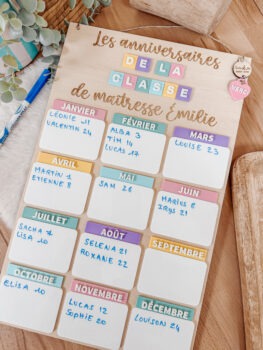 Les anniversaires
DE LA
CLASSE
de maîtresse Émilie
JANVIER
LÉONIE 11
VALENTIN 24
FÉVRIER
ALBA 3
TIM 14
LUCAS 17
MARS
LOUISE 23
AVRIL
MARTIN 1
ETIENNE 8
MAI
SAM 26
JUIN
MARIUS 8
IRYS 21
JUILLET
SACHA 7
LISA 10
AOÛT
SELENA 21
ROXANE 22
SEPTEMBRE
OCTOBRE
ELISA 10
NOVEMBRE
LUCAS 12
SOPHIE 20
DÉCEMBRE
LOUISON 24